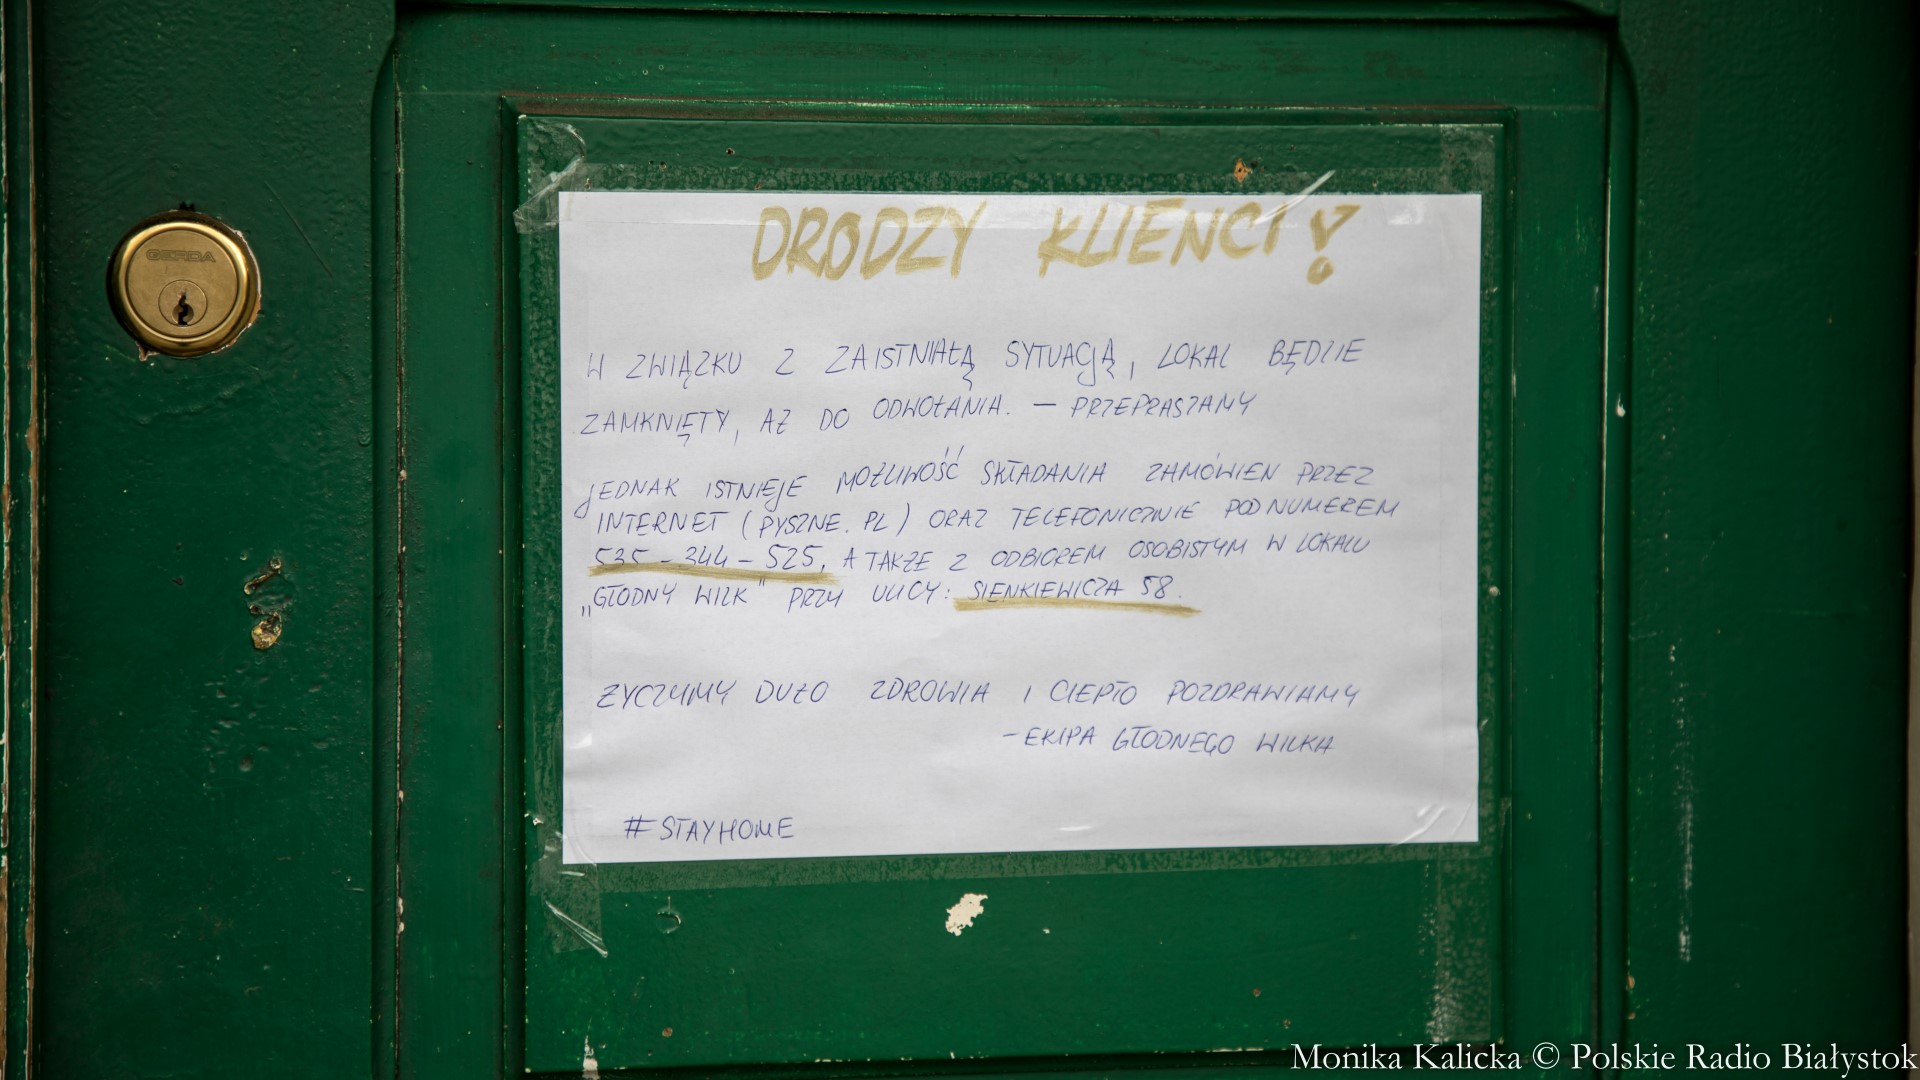 GERDA
DRODZY KLIENCI!
W ZWIĄZKU Z ZAISTNIAŁĄ SYTUACJĄ, LOKAL BĘDZIE
ZAMKNIĘTY, AŻ DO ODWOŁANIA. – PRZEPRASZAMY
JEDNAK ISTNIEJE MOŻLIWOŚĆ SKŁADANIA ZAMÓWIEŃ PRZEZ
INTERNET (PYSZNE.PL) ORAZ TELEFONICZNIE POD NUMEREM
535-344-525, A TAKŻE Z ODBIOREM OSOBISTYM W LOKALU
„GŁODNY WILK" PRZY ULICY: SIENKIEWICZA 58.
ŻYCZYMY DUŻO ZDROWIA I CIEPŁO POZDRAWIAMY
- EKIPA GŁODNEGO WILKA
#STAYHOME
Monika Kalicka © Polskie Radio Białystok